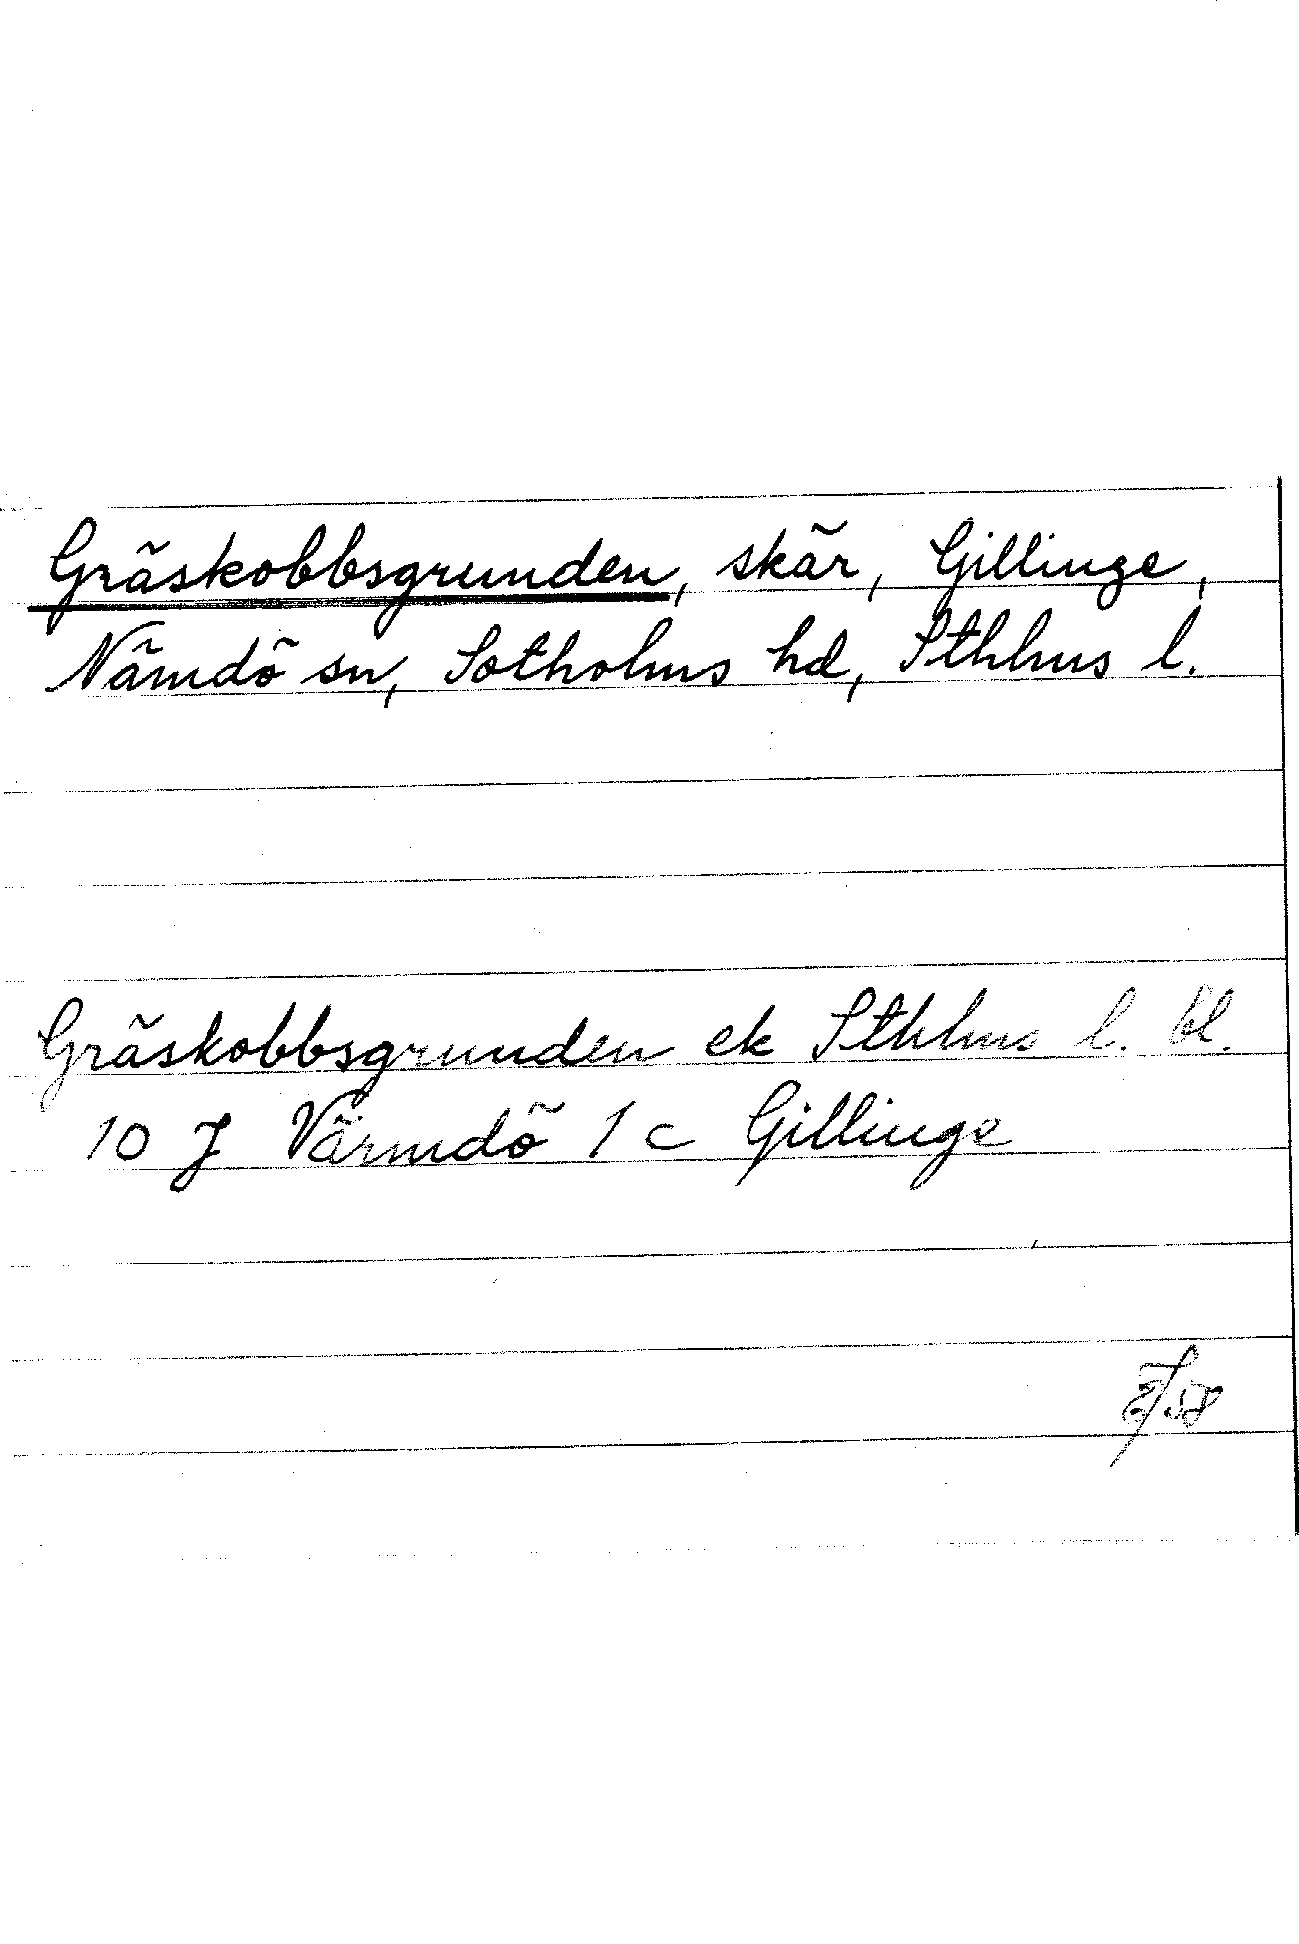 Gräskobbsgrunden, skär, Gillinge,
Nämdö sn, Sotholms hd, Sthlms l.
Gräskobbsgrunden ek Sthlms l. bl.
10 J Värmdö 1 c Gillinge
58